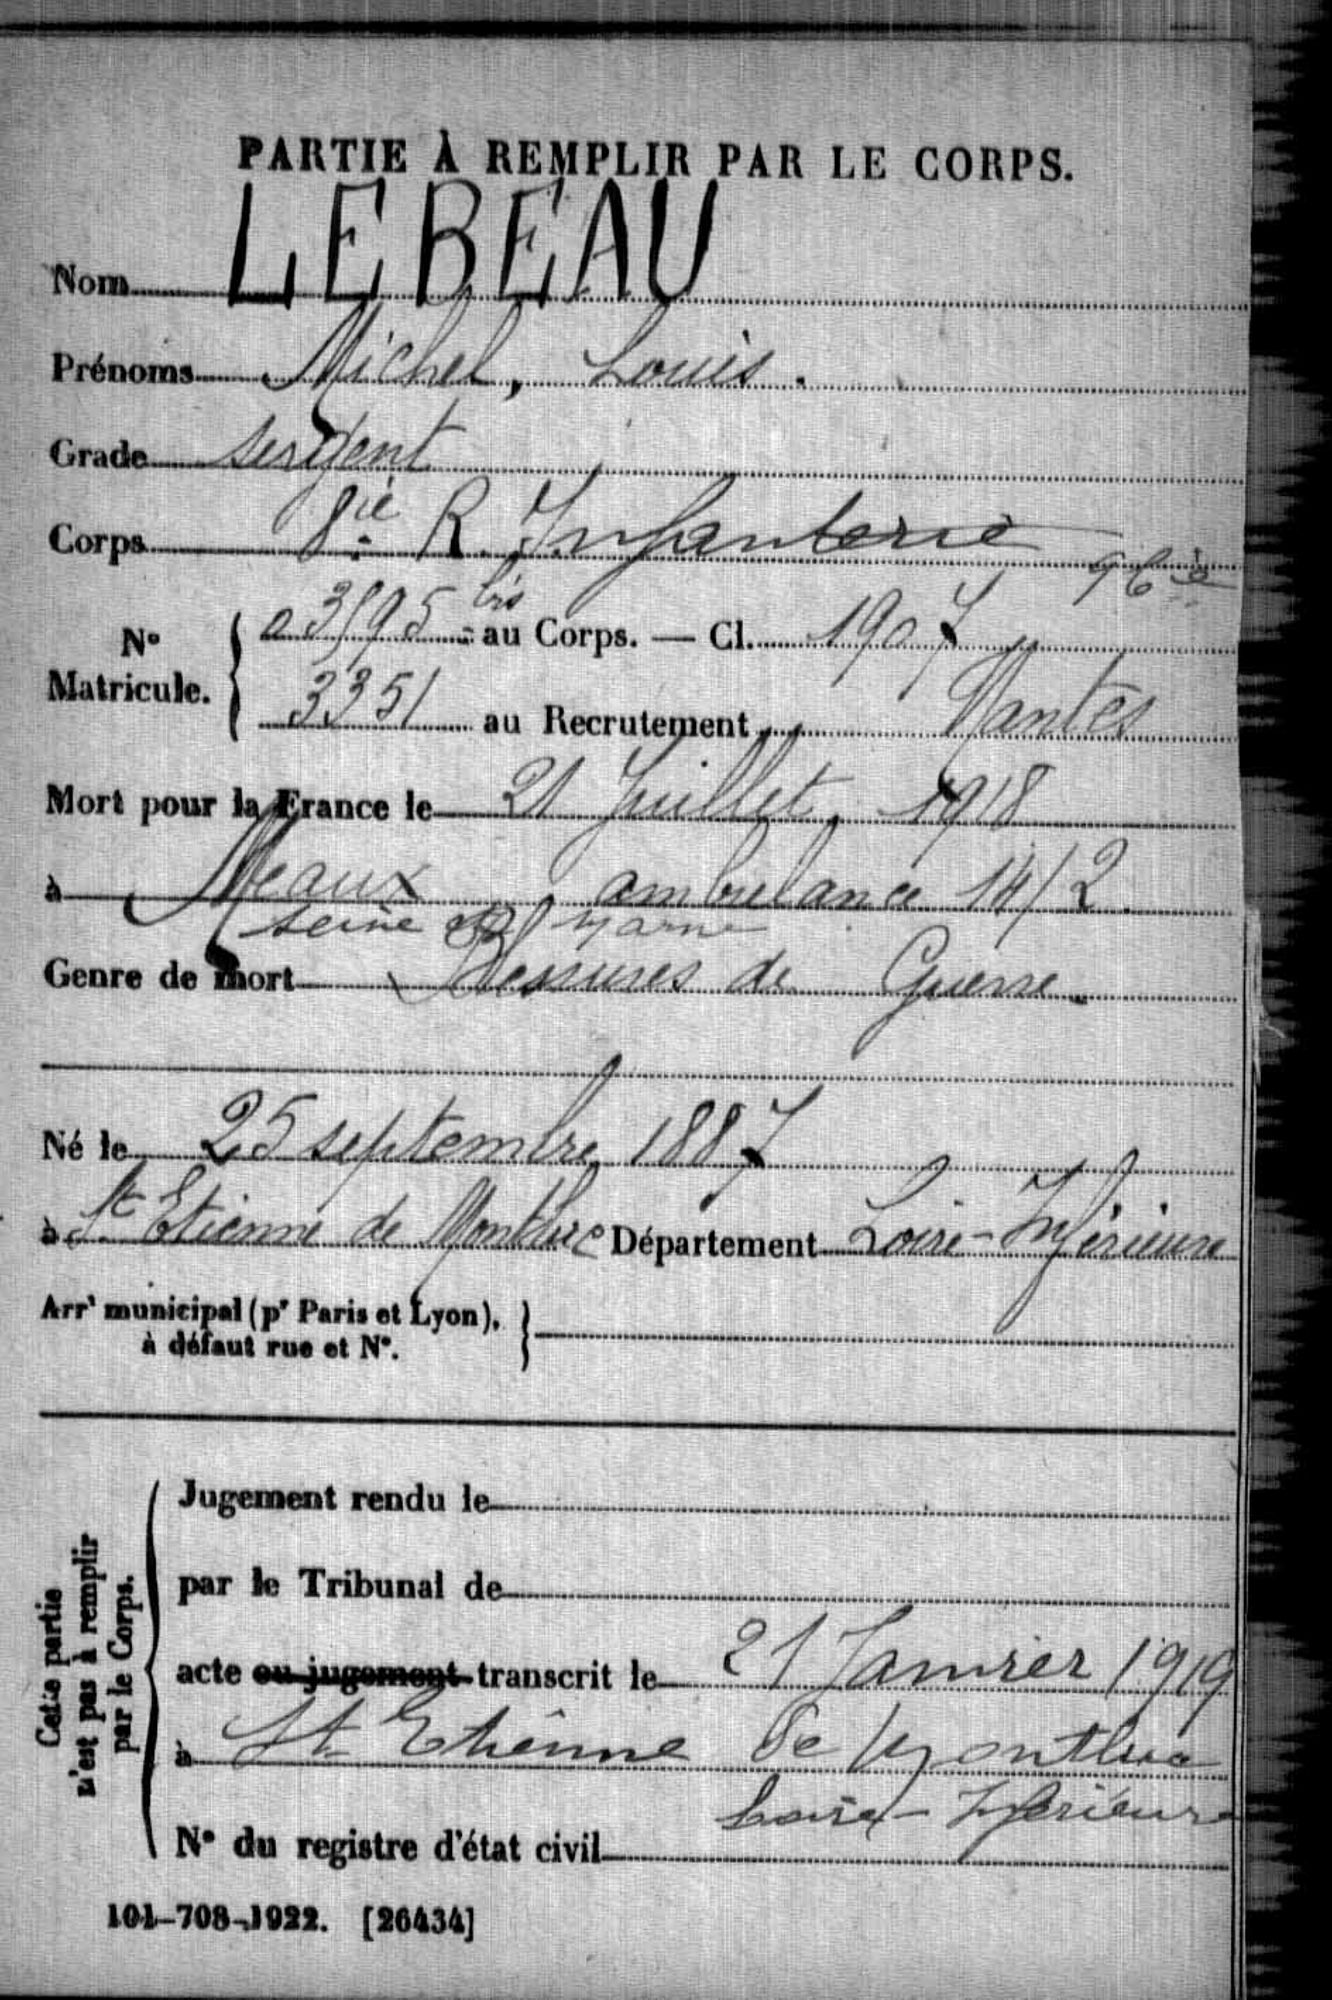 PARTIE À REMPLIR PAR LE CORPS.
Nom LEBEAU
Prénoms Michel, Louis.
Grade sergent
Corps 8ie R. Infanterie
No Matricule. 03595 bis au Corps. — Cl. 1907
3351 au Recrutement Nantes
Mort pour la France le 21 Juillet 1918
à Meaux ambulance 14/2
seine et Marne
Genre de mort Blessures de Guerre.
Né le 25 septembre 1887
à St Etienne de Montluc Département Loire-Inférieure
Arrt municipal (pr Paris et Lyon),
à défaut rue et No.
Cette partie
n'est pas à remplir
par le Corps.
Jugement rendu le
par le Tribunal de
acte ou jugement transcrit le 21 Janvier 1919
à St Etienne de Montluc
Loire-Inférieure
No du registre d'état civil
101-708-1922. [26434]